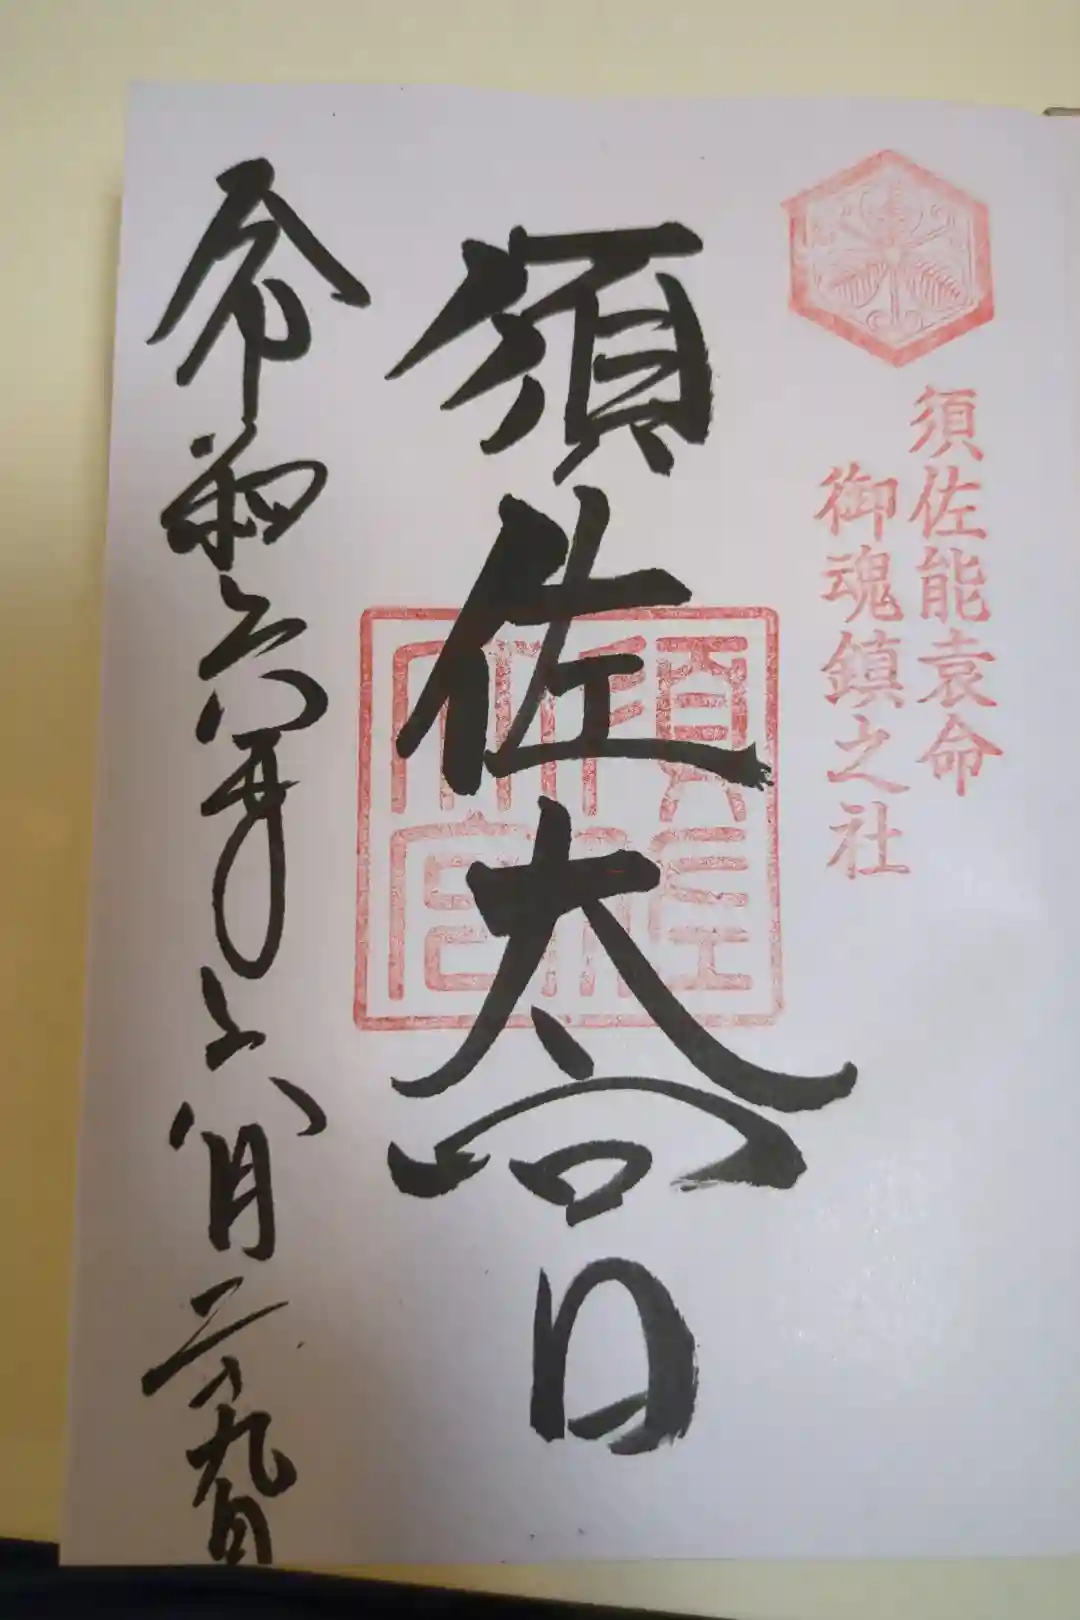 須佐能袁命
御魂鎮之社
須佐大宮
須佐大宮
令和六年六月二十九日